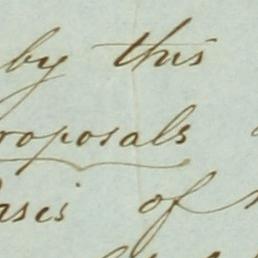 by this
roposals
asis of